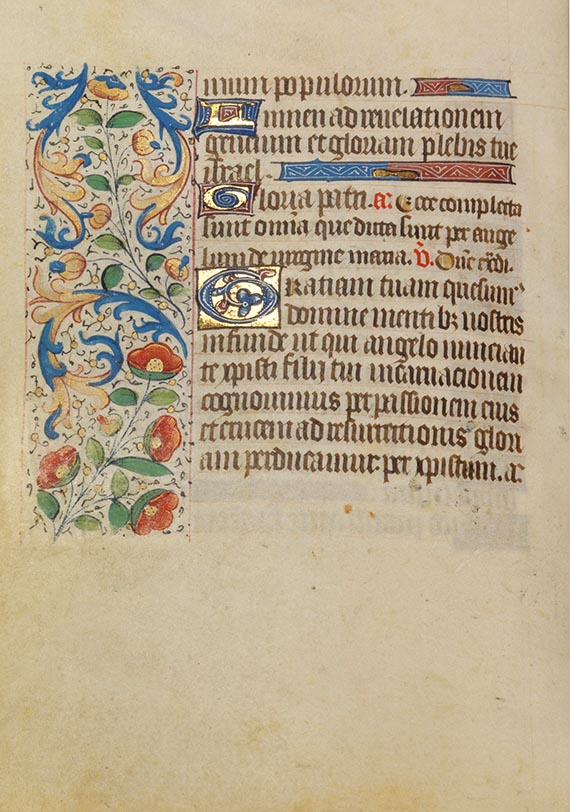 mium populorum.
Lumen ad reuelationem
gentium et gloriam plebis tue
israel.
Gloria patri. a: Ecce completa
sunt omnia que dicta sunt per ange
lum de virgine maria. v. Dne exdi.
Gratiam tuam quesum
domine mentibz nostris
infunde ut qui angelo nuncian
te xpisti filij tui incarnacionem
cognouimus per passionem eius
et crucem ad resurrectionis glori
am perducamur. per xpistum. a: